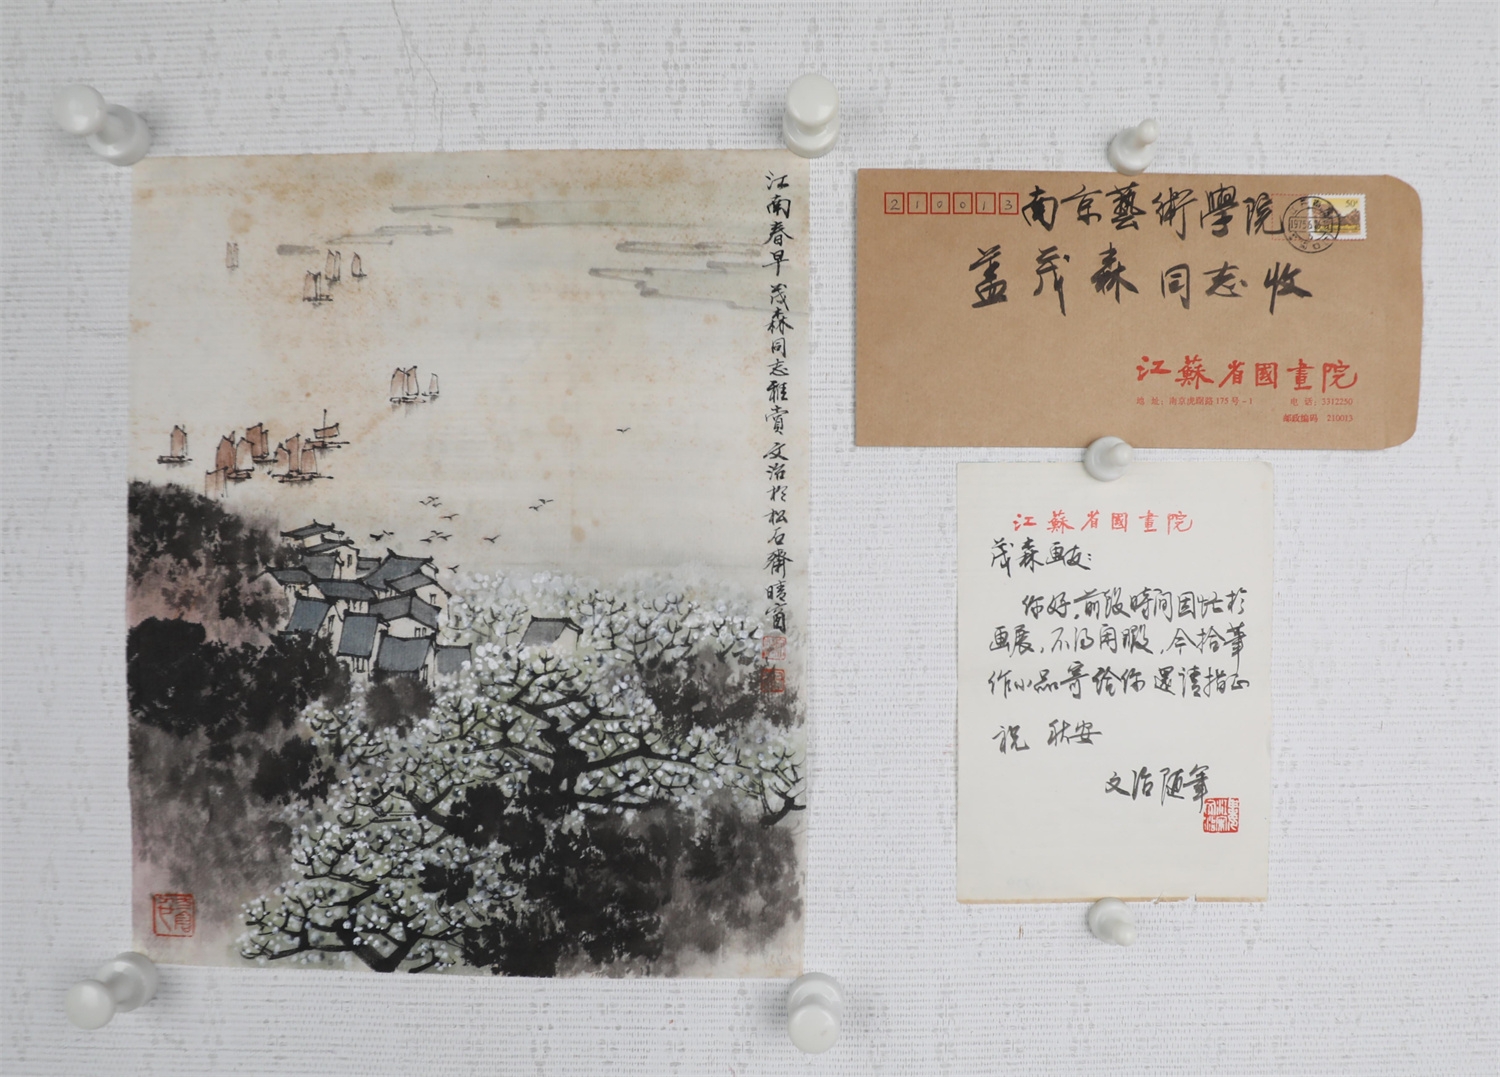 江南春早 茂森同志雅赏 文治於松石齋晴窗
210013
南京藝術學院
50分
蓋茂森同志收
江蘇省國畫院
地 址：南京虎踞路175号-1 电 话：3312250
邮政编码 210013
江蘇省國畫院
茂森画友：
你好！前段時间因忙於
画展，不得闲暇，今拾筆
作小品寄给你還請指正
祝 秋安
文治随筆